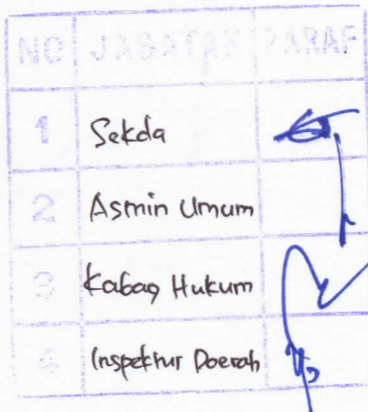 NO JABATAN PARAF
1 Sekda
2 Asmin Umum
3 Kabag Hukum
4 Inspektur Daerah